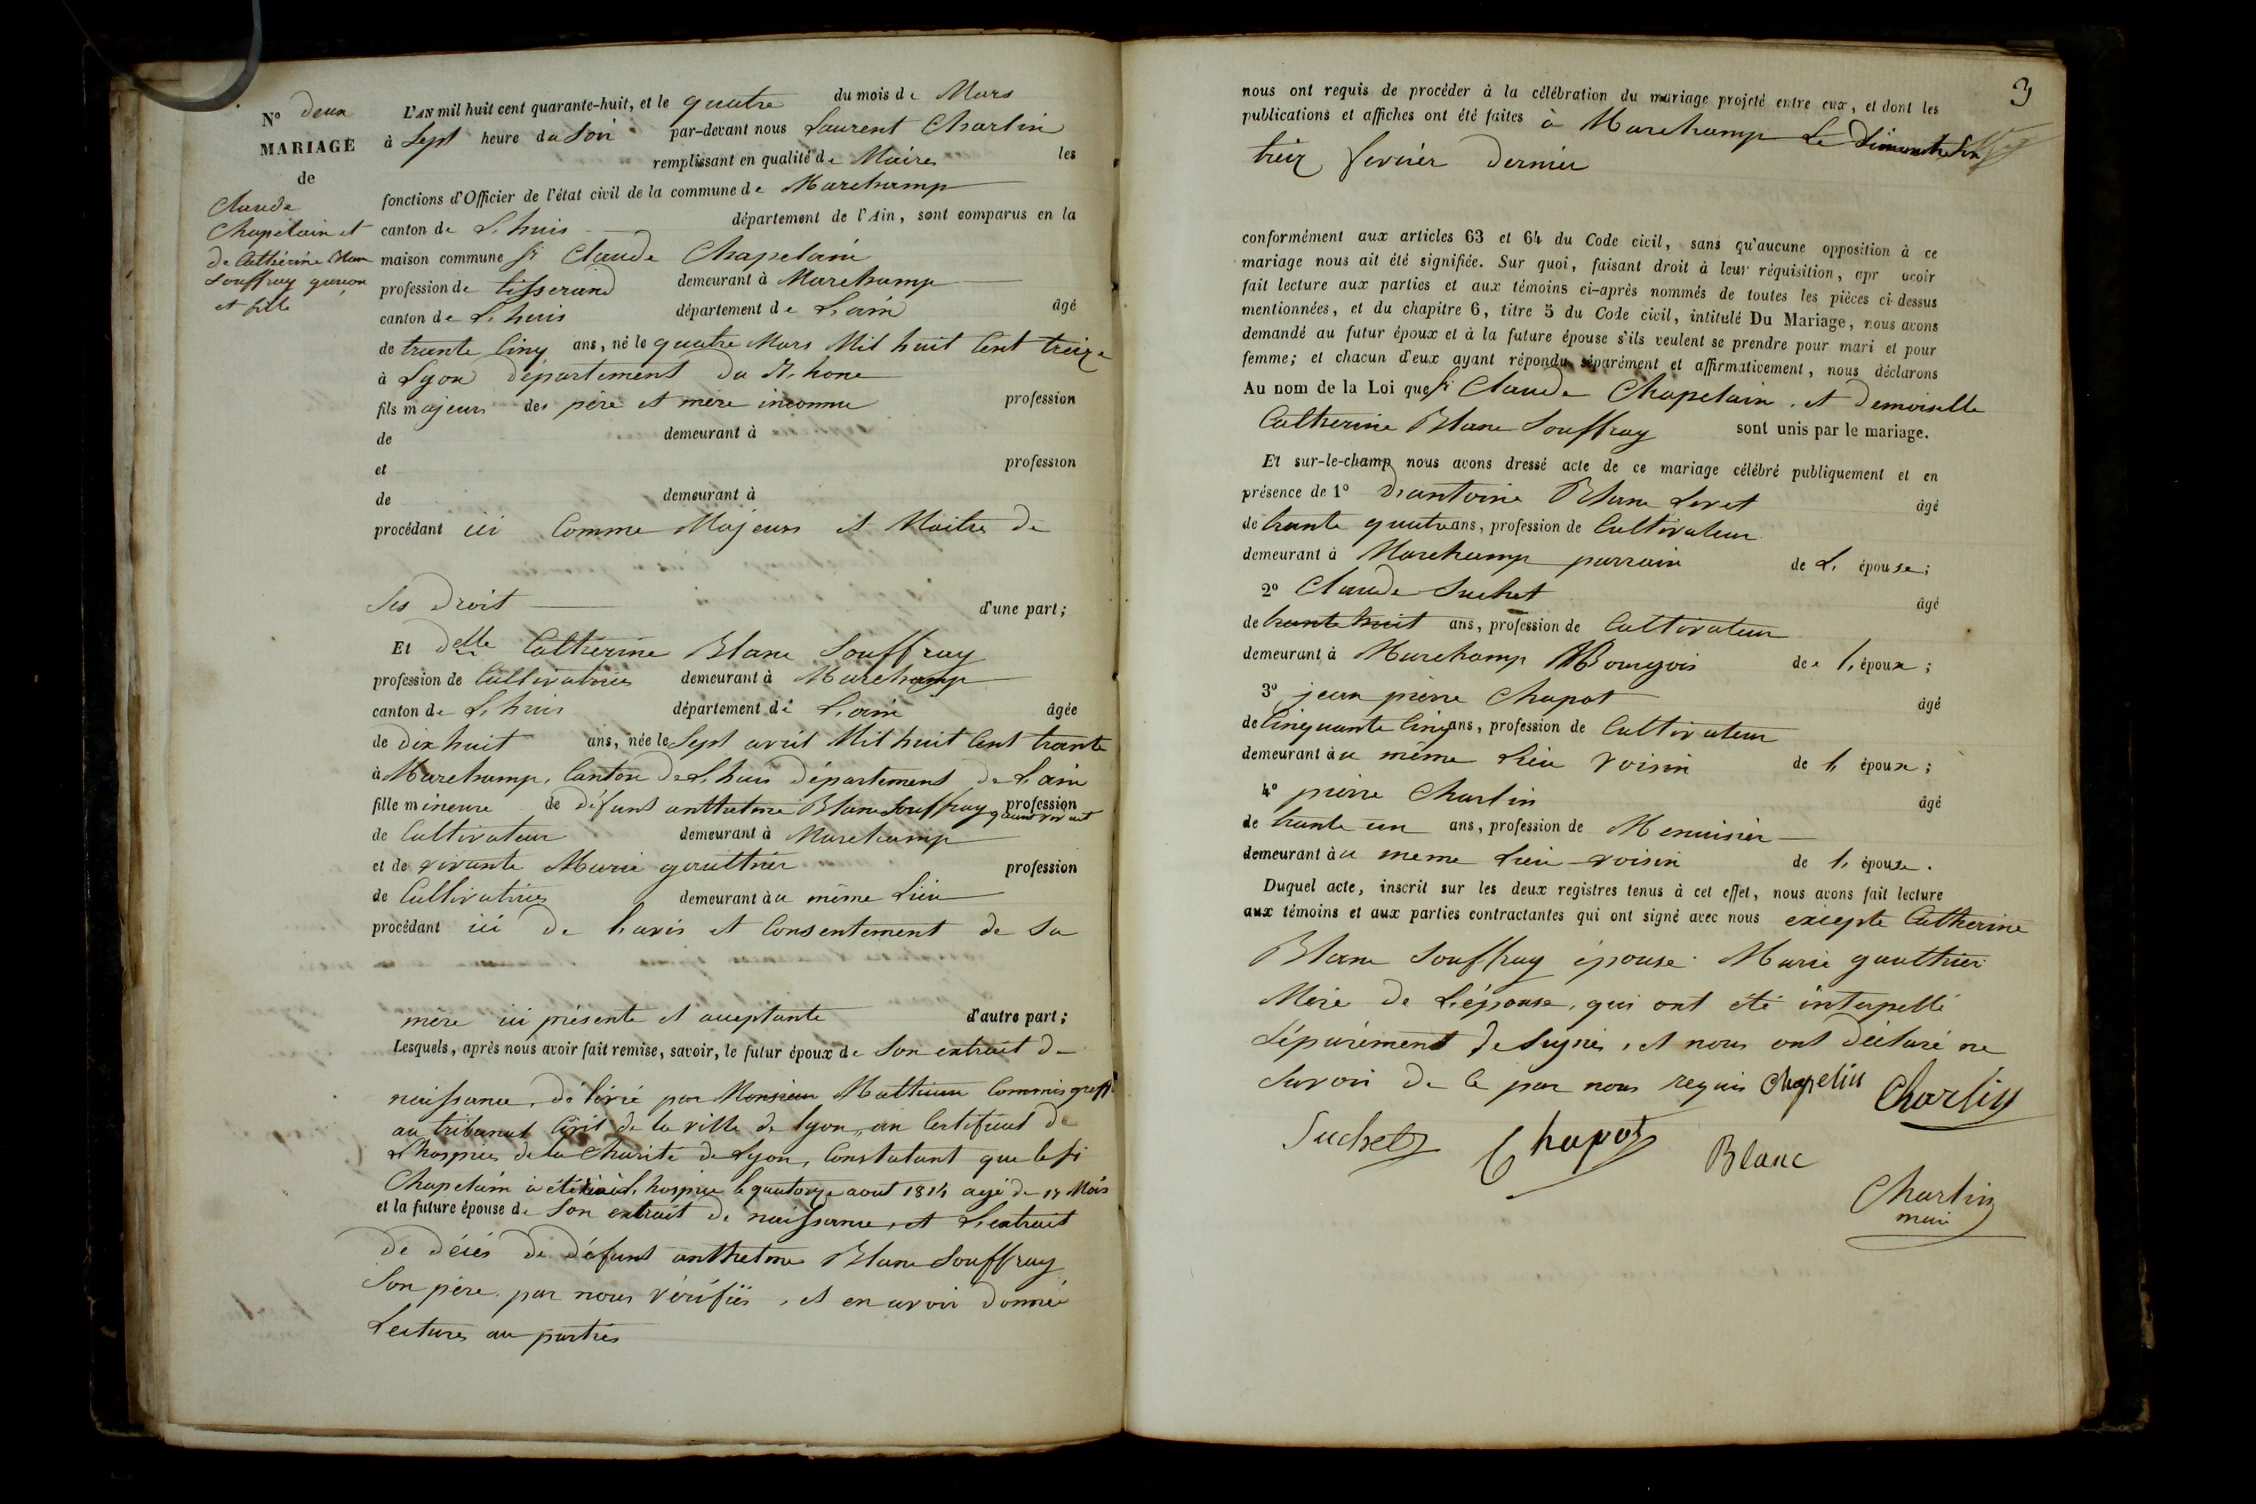 N° deux
MARIAGE
de
Claude
Chapelain et
de Catherine Blanc
Souffray garçon
et fille
L'AN mil huit cent quarante-huit, et le quatre du mois de Mars
à Sept heure du Soir par-devant nous Laurent Charlin
remplissant en qualité de Maire les
fonctions d'Officier de l'état civil de la commune de Marchamp
canton de L'huis département de l'Ain, sont comparus en la
maison commune Sr Claude Chapelain
profession de tisserand demeurant à Marchamp
canton de L'huis département de L'ain âgé
de trante Cinq ans, né le quatre Mars Mil huit Cent treize
à Lyon département du Rhone
fils majeur des père et mère inconnu profession
de demeurant à
et profession
de demeurant à
procédant ici Comme Majeur et Maitre de
Ses droit d'une part;
Et delle Catherine Blanc Souffray
profession de Cultivatrice demeurant à Marchamp
canton de L'huis département de L'ain âgée
de dix huit ans, née le Sept avril Mil huit Cent trante
à Marchamp, Canton de L'huis département de L'ain
fille mineure de défunt anthelme Blanc Souffray quand vivait profession
de Cultivateur demeurant à Marchamp
et de vivante Marie gaulthier profession
de Cultivatrice demeurant à au même Lieu
procédant ici de l'avis et Consentement de sa
mère ici présente et acceptante d'autre part;
Lesquels, après nous avoir fait remise, savoir, le futur époux de Son extrait de
naissance, délivré par Monsieur Matthieu Commis greff.
au tribunal Civil de la ville de Lyon, un Certificat de
L'hospice de la Charité de Lyon, Constatant que le sr
Chapelain a été L'hospice le quatorze aout 1814 agé de 17 Mois
et la future épouse de Son extrait de naissance, et L'extrait
de décés de défunt anthelme Blanc Souffray
Son père, par nous vérifiés, et en avoir donnée
Lecture au parties
3
nous ont requis de procéder à la célébration du mariage projeté entre eux, et dont les
publications et affiches ont été faites à Marchamp Le Dimanche
treize fevrier dernier
conformément aux articles 63 et 64 du Code civil, sans qu'aucune opposition à ce
mariage nous ait été signifiée. Sur quoi, faisant droit à leur réquisition, apr avoir
fait lecture aux parties et aux témoins ci-après nommés de toutes les pièces ci-dessus
mentionnées, et du chapitre 6, titre 5 du Code civil, intitulé Du Mariage, nous avons
demandé au futur époux et à la future épouse s'ils veulent se prendre pour mari et pour
femme; et chacun d'eux ayant répondu séparément et affirmativement, nous déclarons
Au nom de la Loi que sr Claude Chapelain, et demoiselle
Catherine Blanc Souffray sont unis par le mariage.
Et sur-le-champ nous avons dressé acte de ce mariage célébré publiquement et en
présence de 1° antoine Blanc Loret âgé
de trante quatre ans, profession de Cultivateur
demeurant à Marchamp parrain de L' épouse;
2° Claude Suchet âgé
de trante huit ans, profession de Cultivateur
demeurant à Marchamp Bourgois de l' époux;
3° jean pierre Chapot âgé
de Cinquante Cinq ans, profession de Cultivateur
demeurant à au même Lieu voisin de l' époux;
4° pierre Charlin âgé
de trante un ans, profession de Menuisier
demeurant à au meme Lieu voisin de l' épouse.
Duquel acte, inscrit sur les deux registres tenus à cet effet, nous avons fait lecture
aux témoins et aux parties contractantes qui ont signé avec nous excepte Catherine
Blanc Souffray épouse Marie gaulthier
Mère de L'épouse, qui ont été interpellé
Séparément de Signer, et nous ont déclaré ne
Savoir de ce par nous requis Chapelin Charlin
Suchet Chapot Blanc
Charlin
maire